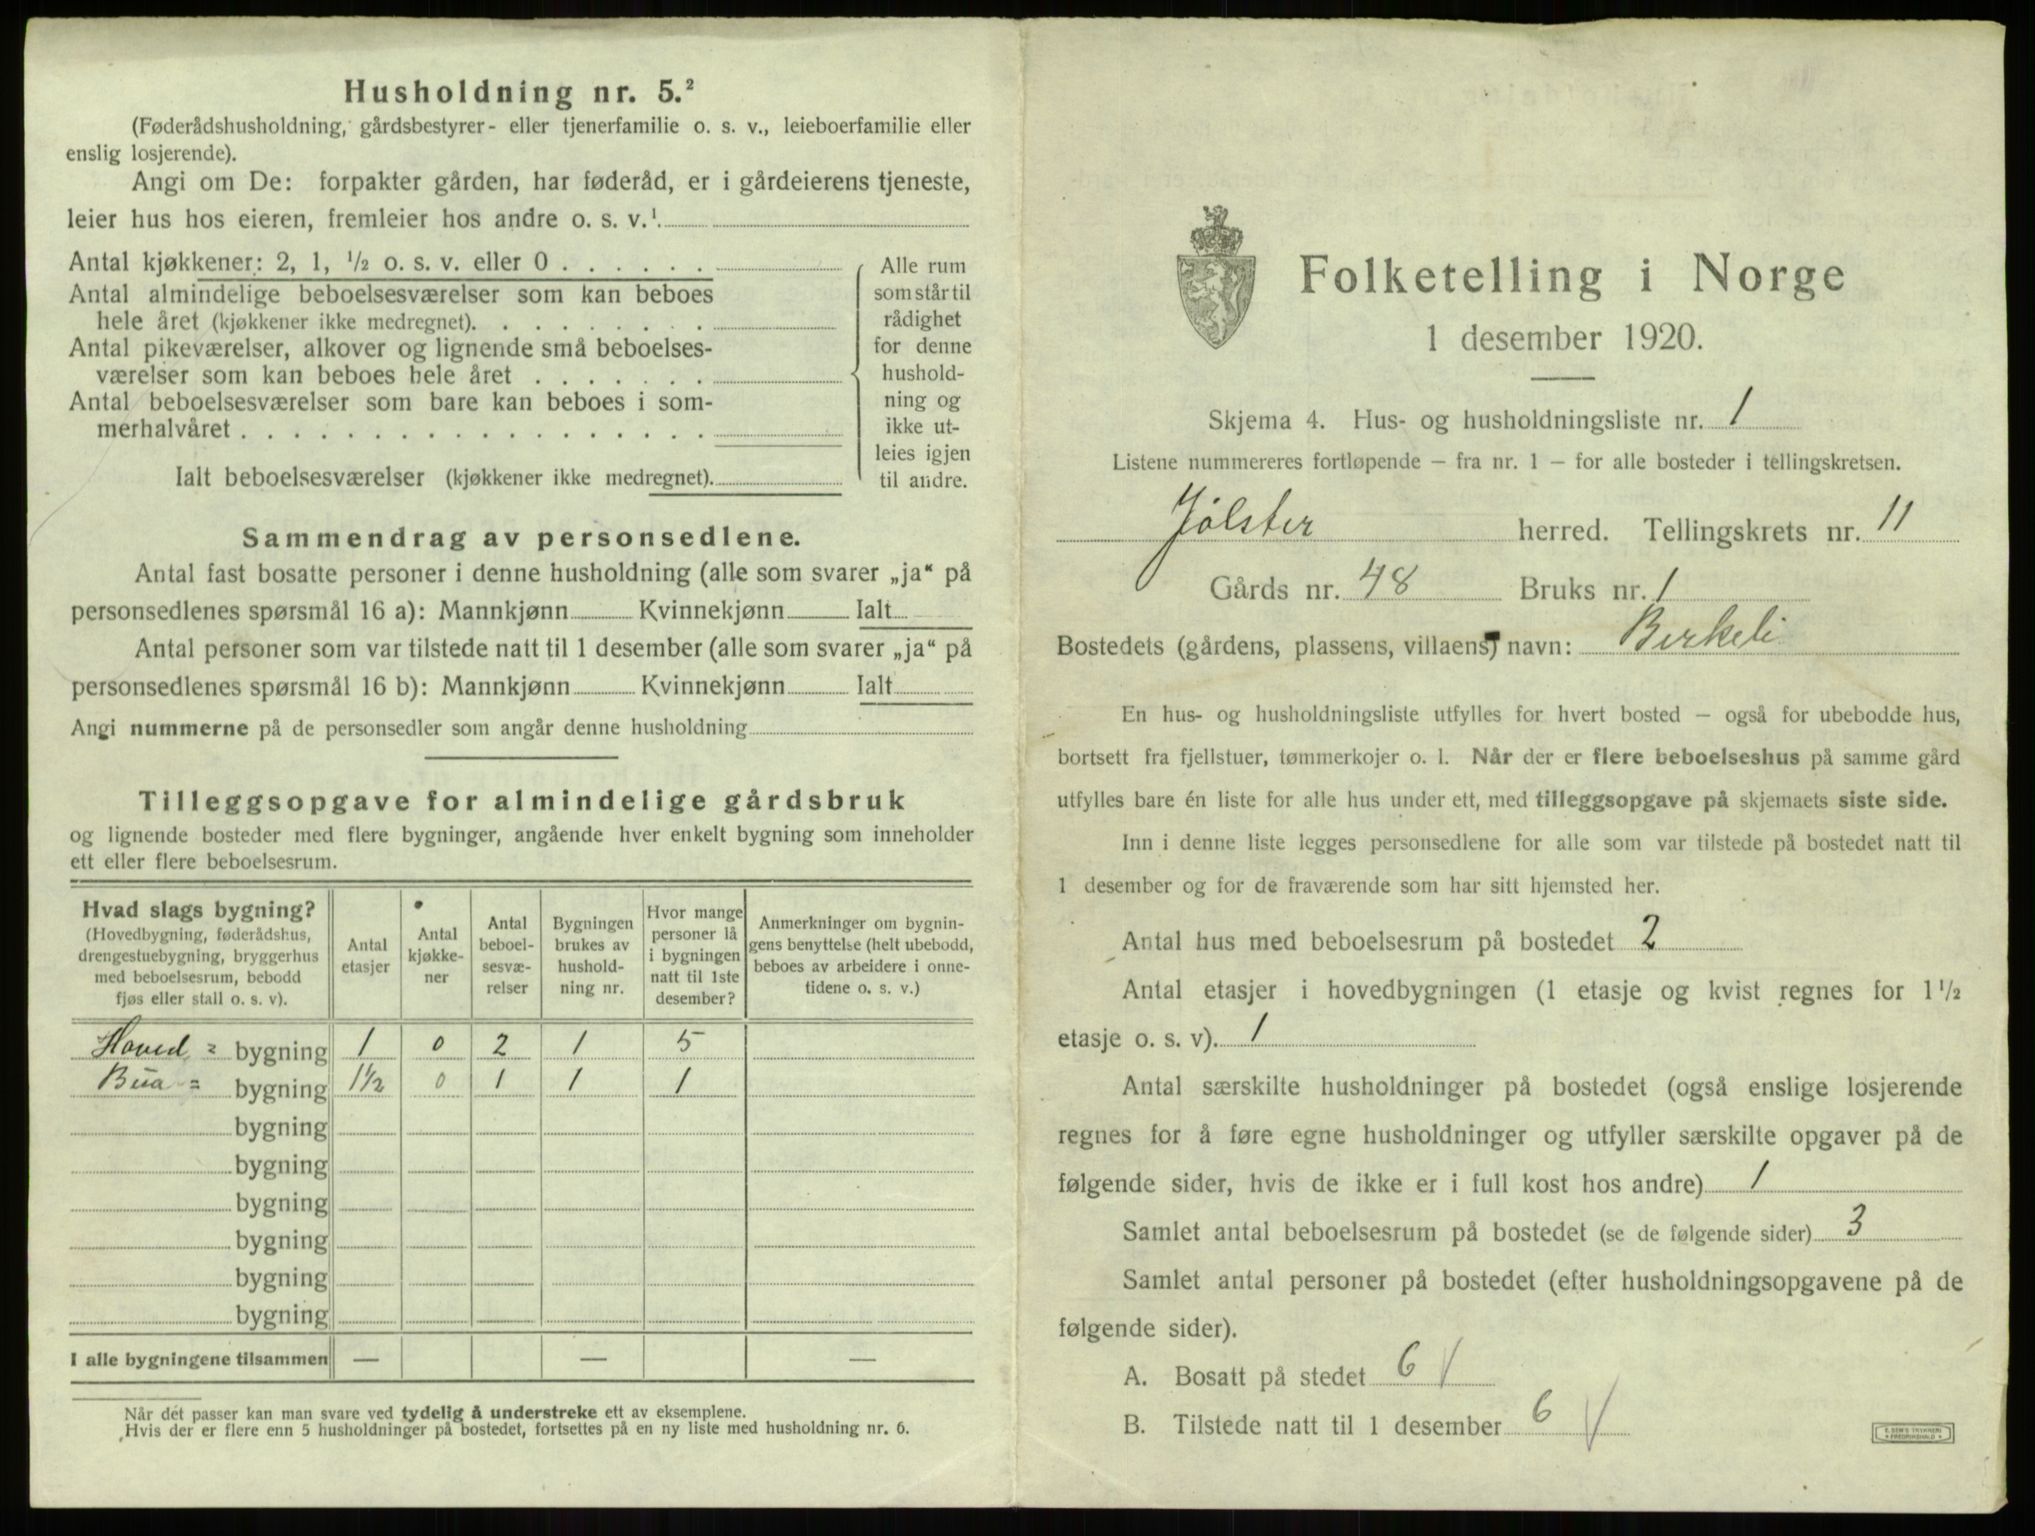 Husholdning nr. 5.²
(Føderådshusholdning, gårdsbestyrer- eller tjenerfamilie o. s. v., leieboerfamilie eller
enslig losjerende).
Angi om De: forpakter gården, har føderåd, er i gårdeierens tjeneste,
leier hus hos eieren, fremleier hos andre o. s. v.¹
Antal kjøkkener: 2, 1, ½ o. s. v. eller 0 . . . . . .
Antal almindelige beboelsesværelser som kan beboes
hele året (kjøkkener ikke medregnet). . . . . . . . .
Antal pikeværelser, alkover og lignende små beboelses-
værelser som kan beboes hele året . . . . . . .
Antal beboelsesværelser som bare kan beboes i som-
merhalvåret . . . . . . . . . . . . . . . . . .
Ialt beboelsesværelser (kjøkkener ikke medregnet).
Alle rum
som står til
rådighet
for denne
hushold-
ning og
ikke ut-
leies igjen
til andre.
Sammendrag av personsedlene.
Antal fast bosatte personer i denne husholdning (alle som svarer „ja“ på
personsedlenes spørsmål 16 a): Mannkjønn Kvinnekjønn Ialt
Antal personer som var tilstede natt til 1 desember (alle som svarer „ja“ på
personsedlenes spørsmål 16 b): Mannkjønn Kvinnekjønn Ialt
Angi nummerne på de personsedler som angår denne husholdning
Tilleggsopgave for almindelige gårdsbruk
og lignende bosteder med flere bygninger, angående hver enkelt bygning som inneholder
ett eller flere beboelsesrum.
Hvad slags bygning?
(Hovedbygning, føderådshus,
drengestuebygning, bryggerhus
med beboelsesrum, bebodd
fjøs eller stall o. s. v).
Antal
etasjer
Antal
kjøkke-
ner
Antal
beboel-
sesvæ-
relser
Bygningen
brukes av
hushold-
ning nr.
Hvor mange
personer lå
i bygningen
natt til 1ste
desember?
Anmerkninger om bygnin-
gens benyttelse (helt ubebodd,
beboes av arbeidere i onne-
tidene o. s. v.)
Hoved = bygning 1 0 2 1 5
Bua = bygning 1½ 0 1 1 1
bygning
bygning
bygning
bygning
bygning
bygning
I alle bygningene tilsammen — — —
Når det passer kan man svare ved tydelig å understreke ett av eksemplene.
Hvis der er flere enn 5 husholdninger på bostedet, fortsettes på en ny liste med husholdning nr. 6.
Folketelling i Norge
1 desember 1920.
Skjema 4. Hus- og husholdningsliste nr. 1
Listene nummereres fortløpende — fra nr. 1 — for alle bosteder i tellingskretsen.
Jølster herred. Tellingskrets nr. 11
Gårds nr. 48 Bruks nr. 1
Bostedets (gårdens, plassens, villaens) navn: Birkeli
En hus- og husholdningsliste utfylles for hvert bosted — også for ubebodde hus,
bortsett fra fjellstuer, tømmerkojer o. l. Når der er flere beboelseshus på samme gård
utfylles bare én liste for alle hus under ett, med tilleggsopgave på skjemaets siste side.
Inn i denne liste legges personsedlene for alle som var tilstede på bostedet natt til
1 desember og for de fraværende som har sitt hjemsted her.
Antal hus med beboelsesrum på bostedet 2
Antal etasjer i hovedbygningen (1 etasje og kvist regnes for 1½
etasje o. s. v). 1
Antal særskilte husholdninger på bostedet (også enslige losjerende
regnes for å føre egne husholdninger og utfyller særskilte opgaver på de
følgende sider, hvis de ikke er i full kost hos andre) 1
Samlet antal beboelsesrum på bostedet (se de følgende sider) 3
Samlet antal personer på bostedet (efter husholdningsopgavene på de
følgende sider).
A. Bosatt på stedet 6
B. Tilstede natt til 1 desember 6
E. SEM'S TRYKKERI
FREDRIKSHALD